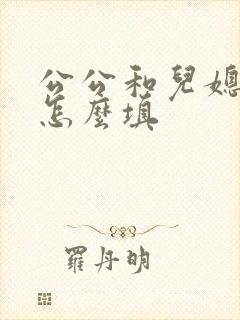 公公和兒媳
怎麼填
羅丹明